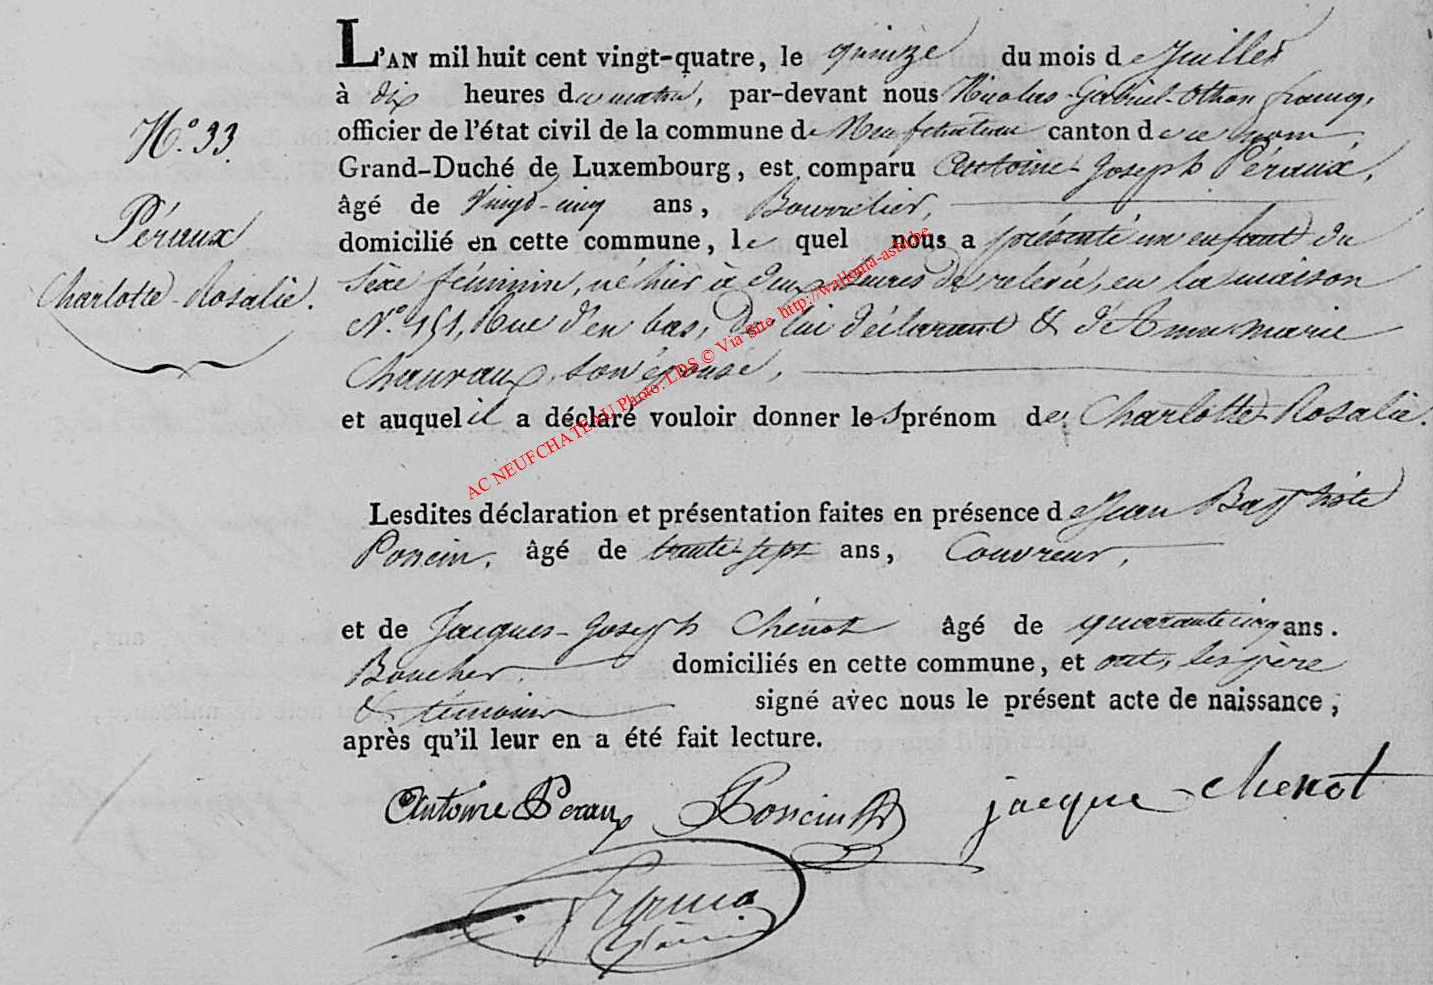 L'AN mil huit cent vingt-quatre, le quinze du mois de Juillet
à dix heures du matin, par-devant nous Nicolas-Gabriel-Othon Francq,
officier de l'état civil de la commune de Neufchateau canton de ce nom
Grand-Duché de Luxembourg, est comparu Antoine-Joseph Péraux,
âgé de Vingt-cinq ans, Bourrelier,
domicilié en cette commune, le quel nous a présenté un enfant du
Sèxe féminin, né hier à deux heures de relevée, en la maison
N.° 151, Rue d'en bas, de lui déclarant & d'Anne marie
Chauvaux, son épouse,
et auquel il a déclaré vouloir donner les prénom de Charlotte-Rosalie.
N.° 33.
Péraux
Charlotte-Rosalie.
Lesdites déclaration et présentation faites en présence de Jean Baptiste
Poncin, âgé de trente-sept ans, Couvreur,
et de Jacques-Joseph Chénot âgé de quarante cinq ans.
Boucher, domiciliés en cette commune, et ont, les père
& témoins signé avec nous le présent acte de naissance ;
après qu'il leur en a été fait lecture.
Antoine Peraux Poncin jacque chenot
Francq
AC NEUFCHATEAU Photo. LDS © Via Site http://wallonia-asbl.be